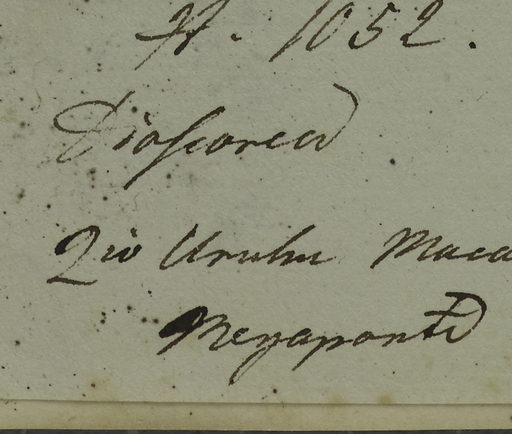 N. 1052.
Dioscorea
Rio Uruhu Maca
Megaponte